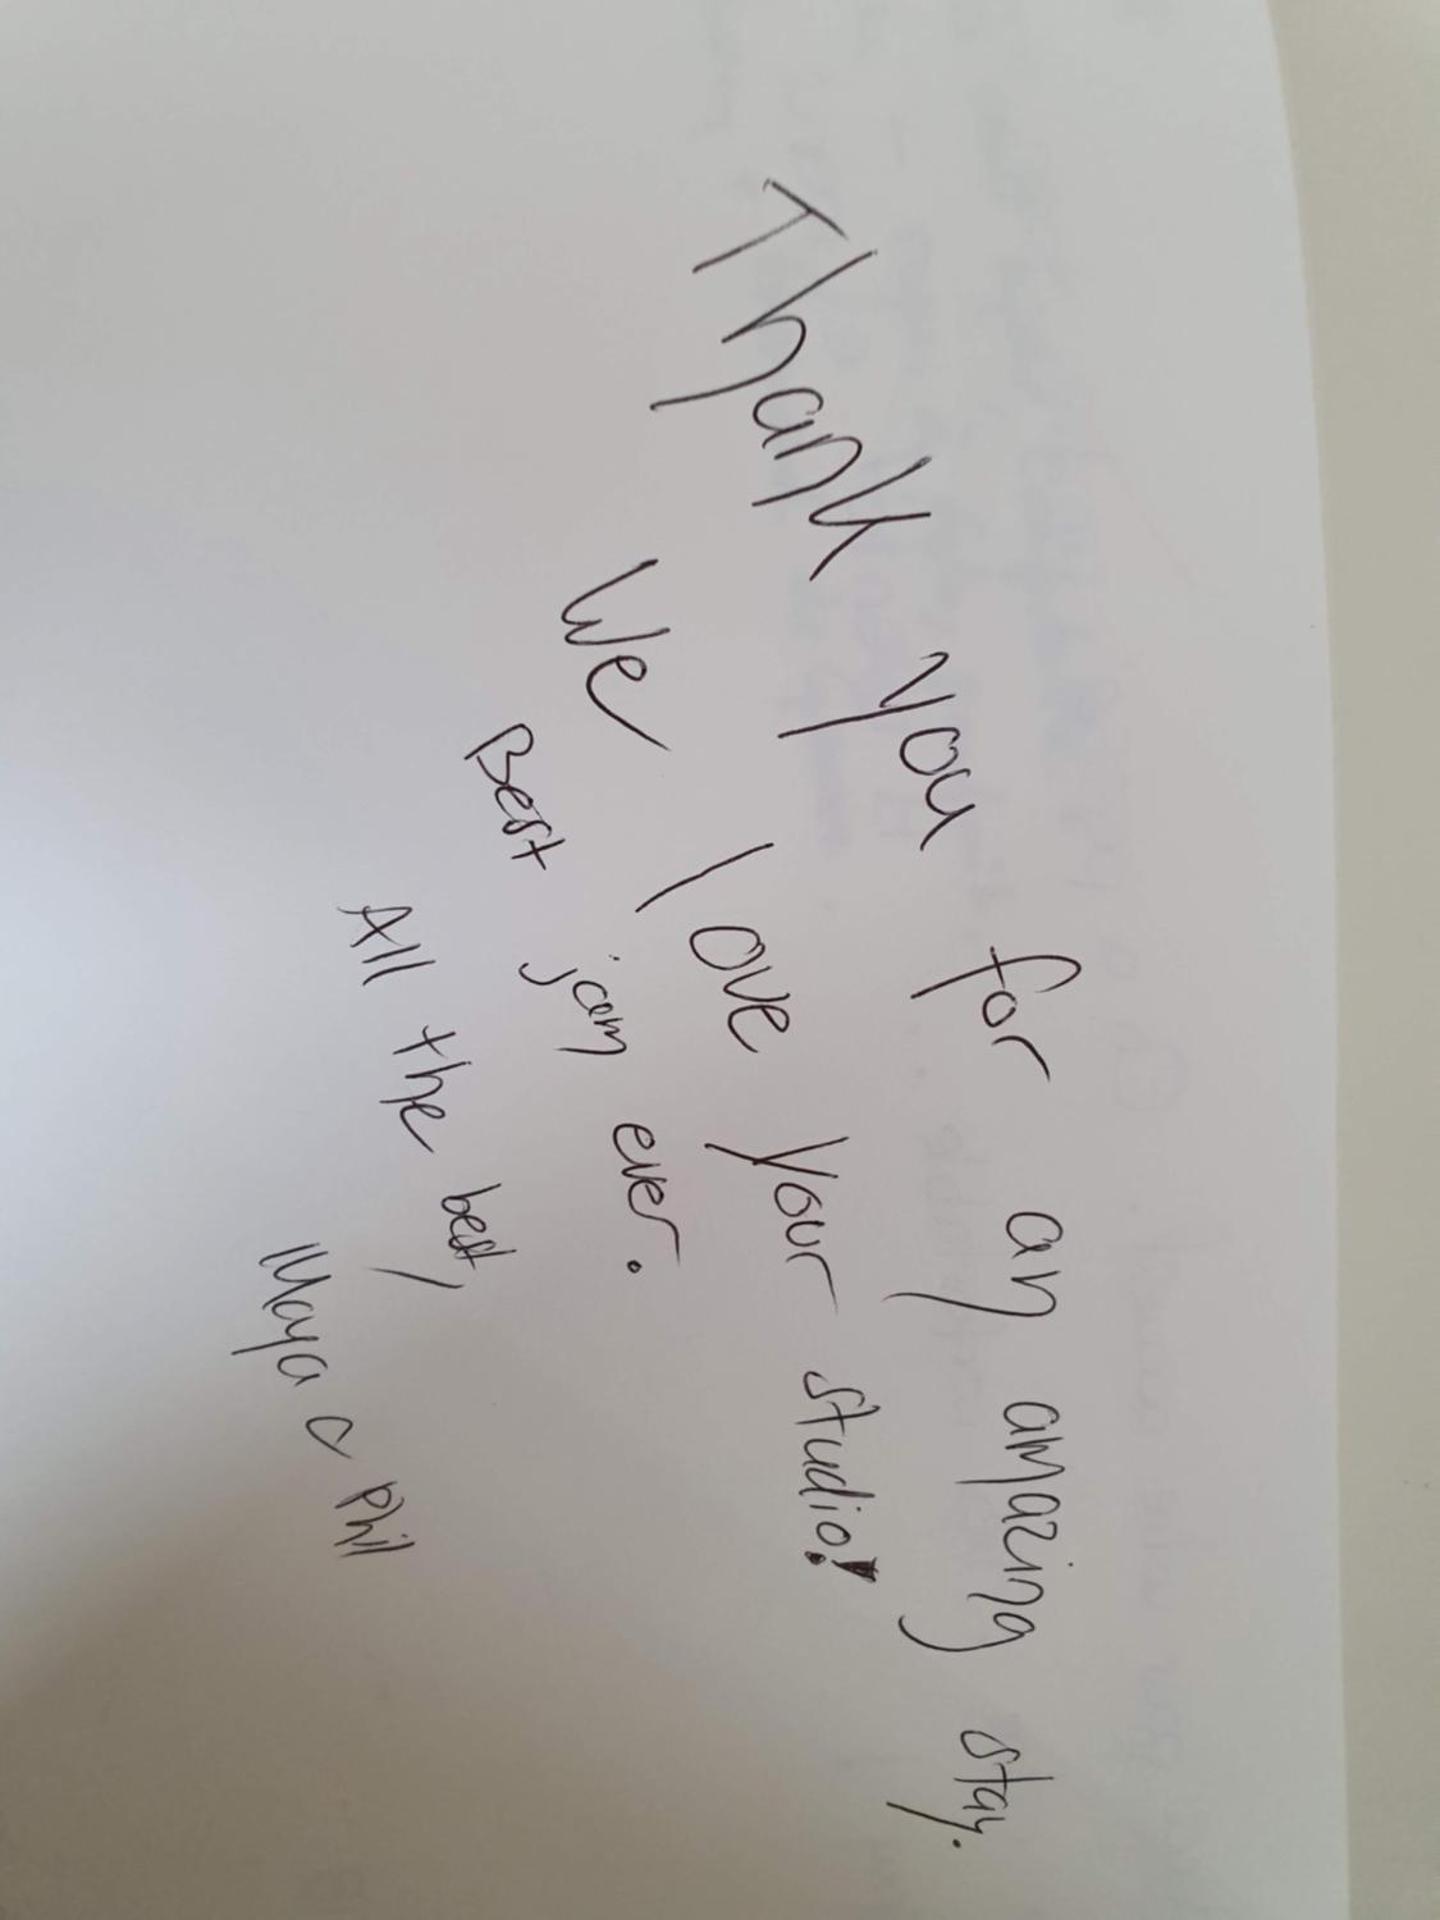 Thank you for an amazing stay.
We love your studio!
Best jam ever.
All the best,
Maya & Phil